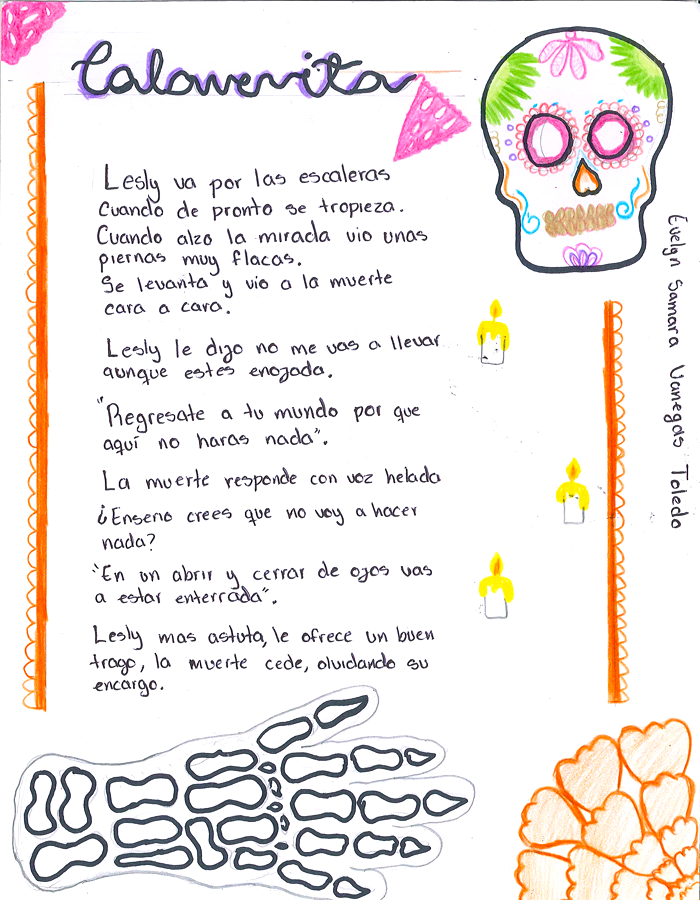 Calaverita
Lesly va por las escaleras
Cuando de pronto se tropieza.
Cuando alzo la mirada vio unas
piernas muy flacas.
Se levanta y vio a la muerte
cara a cara.
Lesly le dijo no me vas a llevar
aunque estes enojada.
"Regresate a tu mundo por que
aquí no haras nada".
La muerte responde con voz helada
¿Enserio crees que no voy a hacer
nada?
"En un abrir y cerrar de ojos vas
a estar enterrada".
Lesly mas astuta, le ofrece un buen
trago, la muerte cede, olvidando su
encargo.
Evelyn Samara Vanegas Toledo